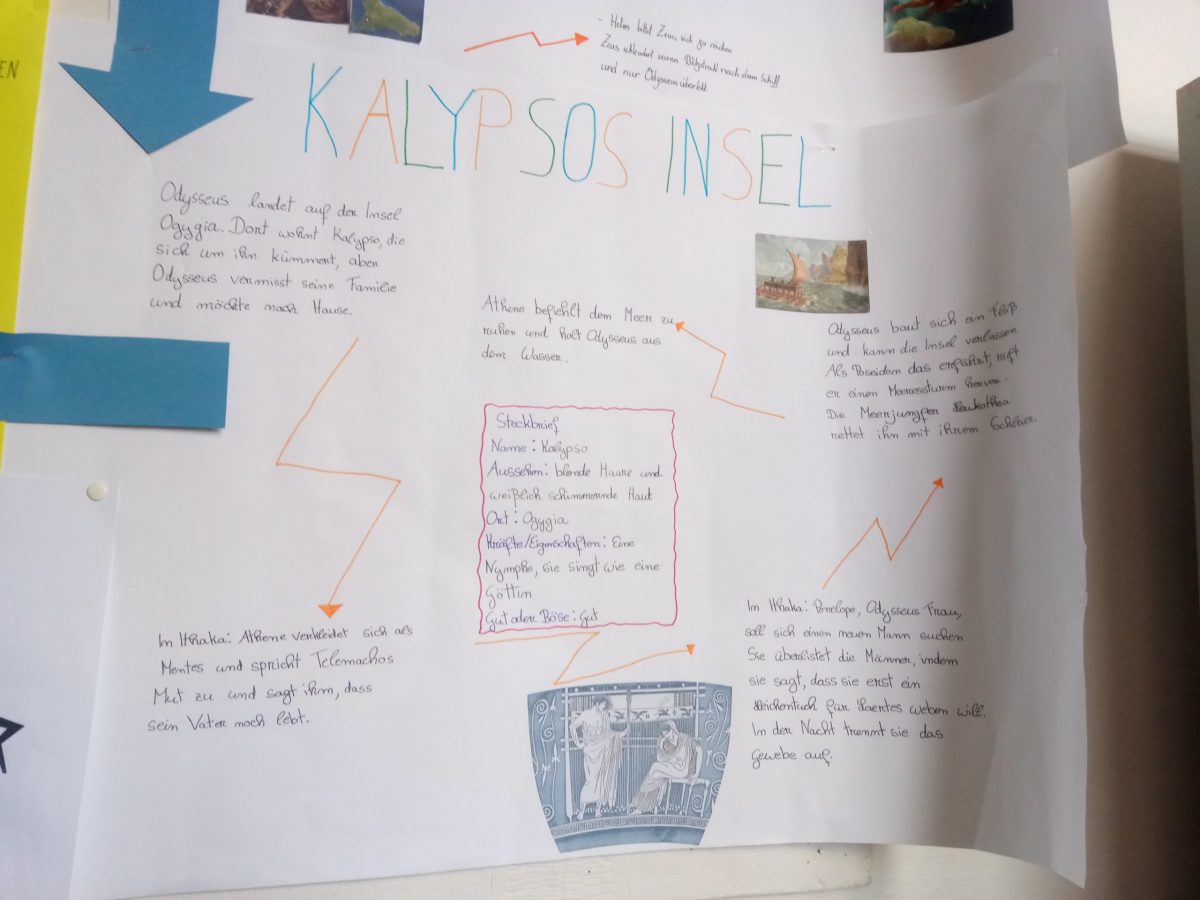 EN
- Helios bittet Zeus, sich zu rächen
Zeus schleudert seinen Blitzstrahl nach dem Schiff
und nur Odysseus überlebt.
KALYPSOS INSEL
Odysseus landet auf der Insel
Ogygia. Dort wohnt Kalypso, die
sich um ihn kümmert, aber
Odysseus vermisst seine Familie
und möchte nach Hause.
In Ithaka: Athene verkleidet sich als
Mentes und spricht Telemachos
Mut zu und sagt ihm, dass
sein Vater noch lebt.
In Ithaka: Penelope, Odysseus Frau,
soll sich einen neuen Mann suchen
Sie überlistet die Männer, indem
sie sagt, dass sie erst ein
Leichentuch für Laertes weben will.
In der Nacht trennt sie das
Gewebe auf.
Odysseus baut sich ein Floß
und kann die Insel verlassen
Als Poseidon das erfährt, ruft
er einen Meeressturm hervor.
Die Meerjungfer Leukothea
rettet ihn mit ihrem Schleier.
Athene befiehlt dem Meer zu
ruhen und holt Odysseus aus
dem Wasser.
Steckbrief
Name: Kalypso
Aussehen: blonde Haare und
weißlich schimmernde Haut
Ort: Ogygia
Kräfte/Eigenschaften: Eine
Nymphe, sie singt wie eine
Göttin
Gut oder Böse: Gut